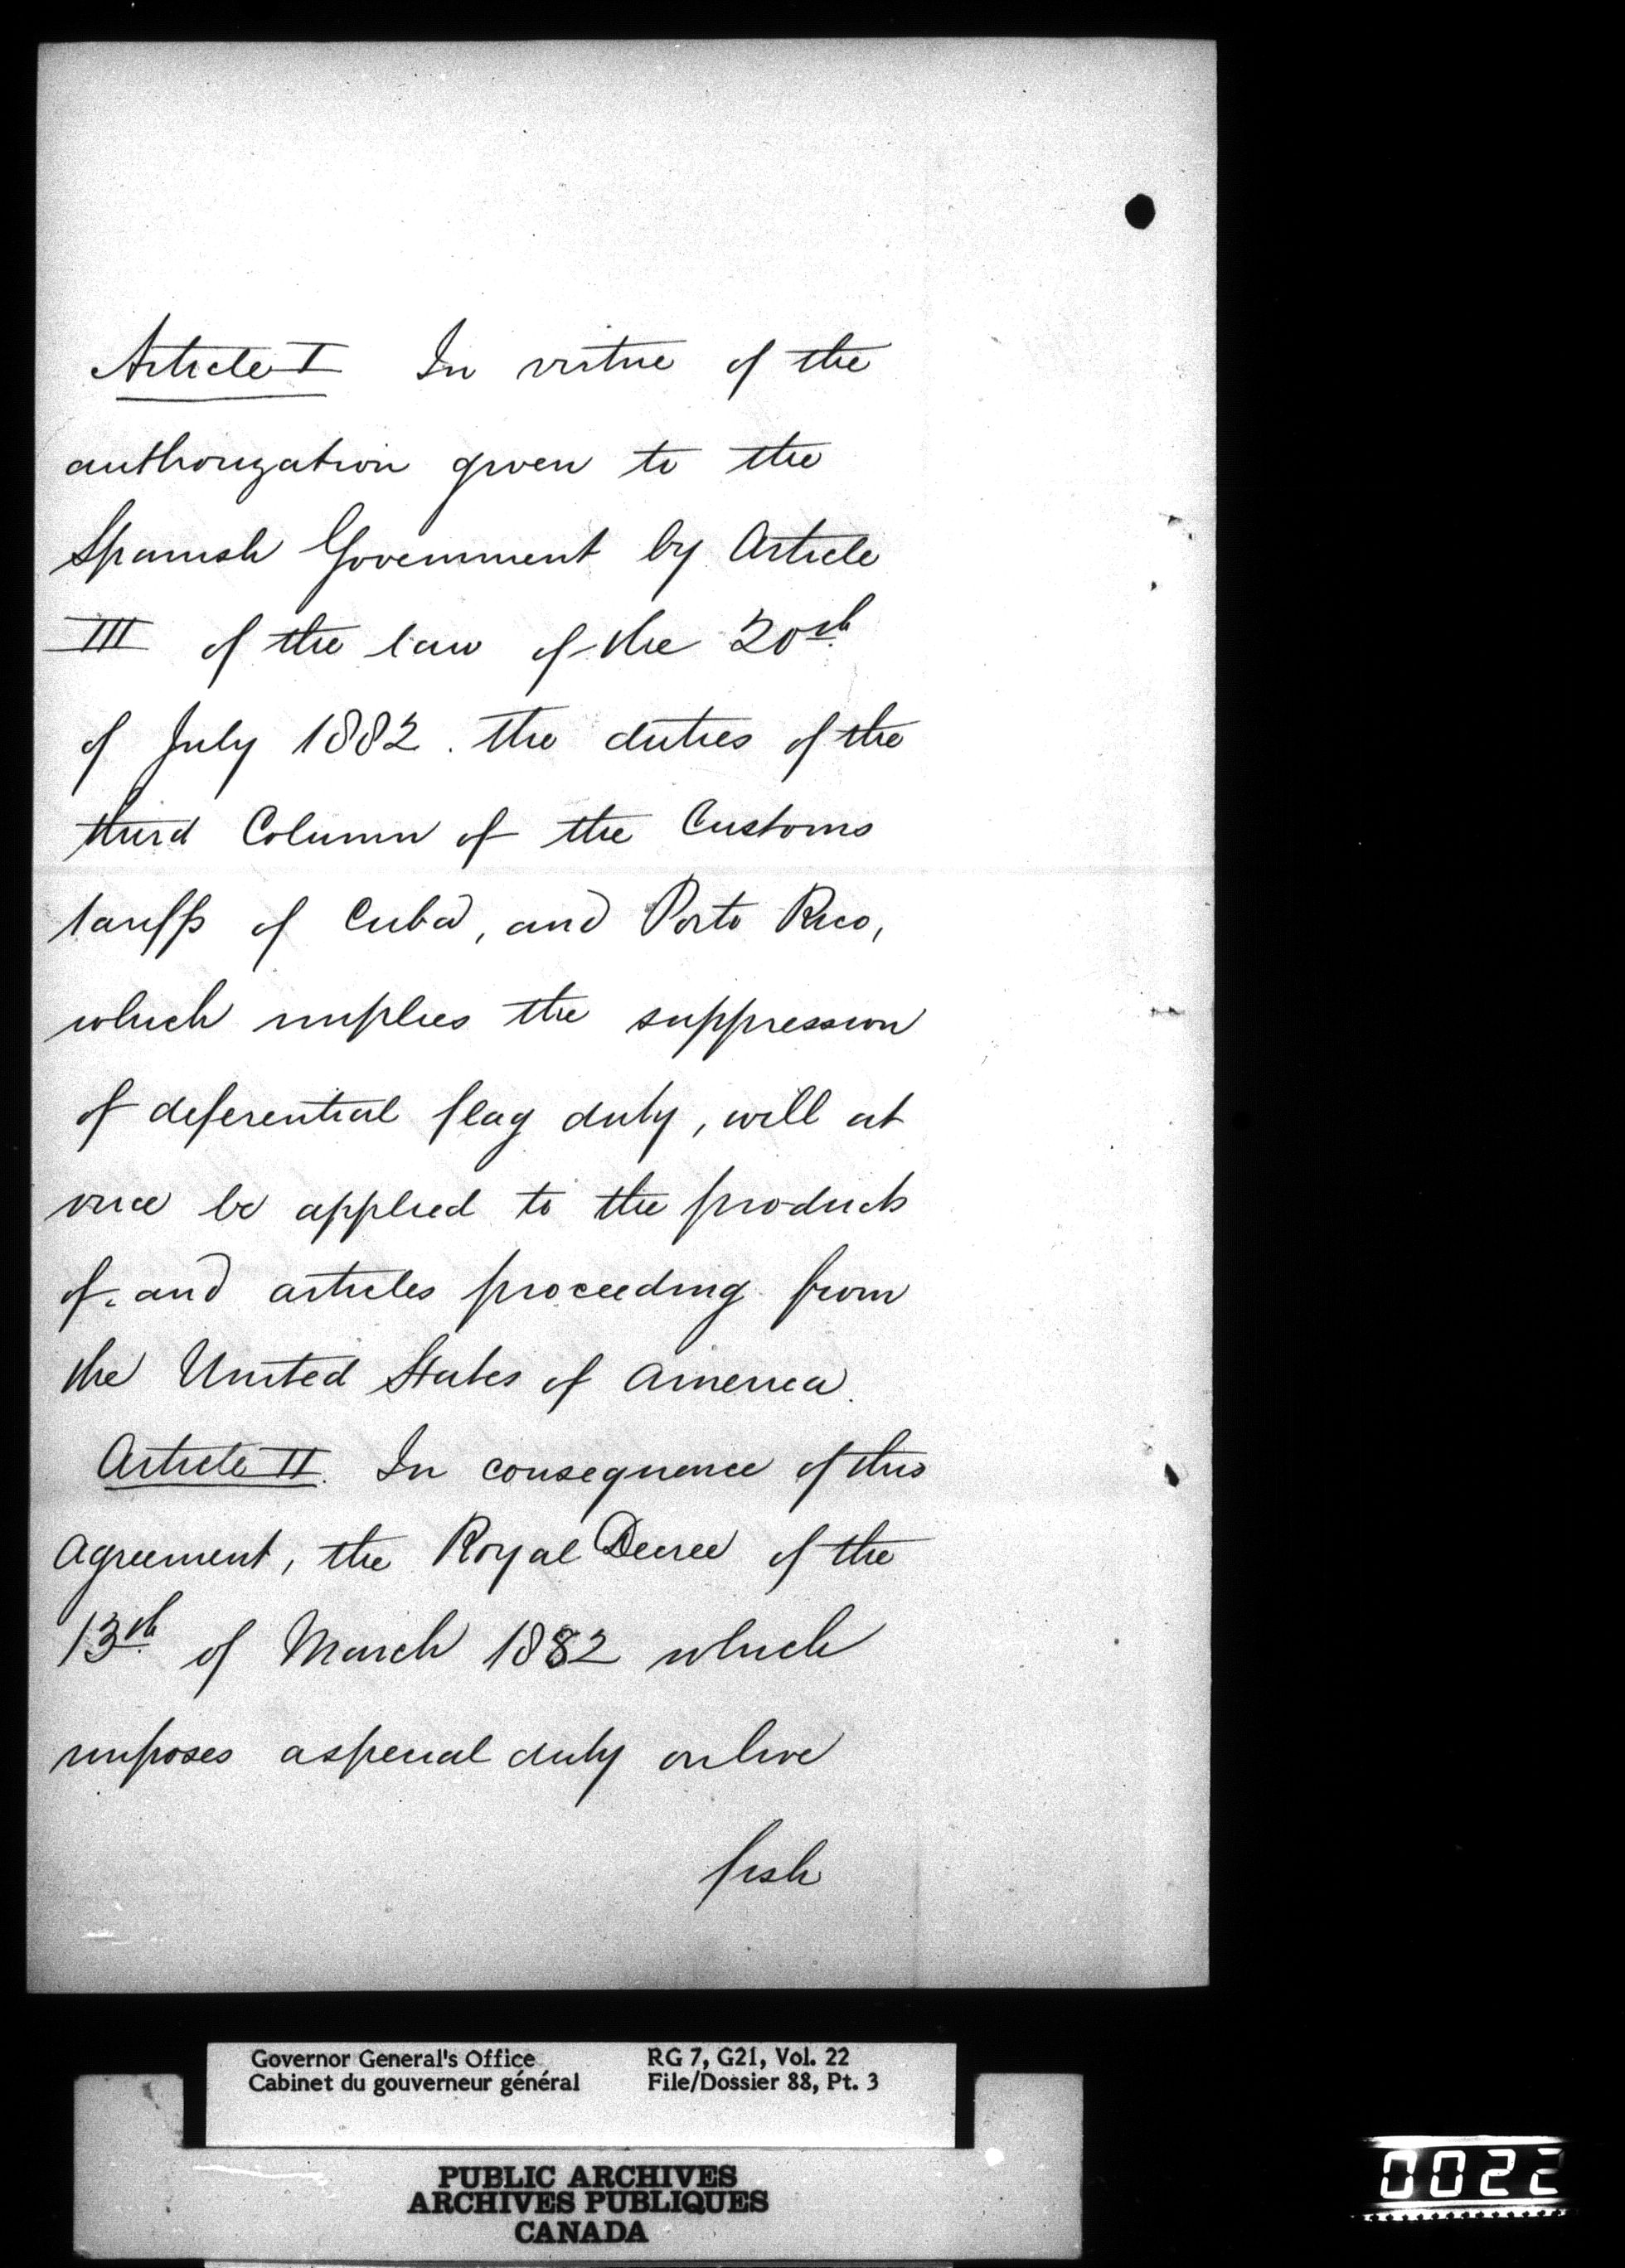 Article I In virtue of the
authorization given to the
Spanish Government by Article
III of the law of the 20th
of July 1882. the duties of the
third Column of the Customs
tariffs of Cuba, and Porto Rico,
which implies the suppression
of deferential flag duty, will at
once be applied to the products
of, and articles proceeding from
the United States of America.
Article II. In consequence of this
agreement, the Royal Decree of the
13th of March 1882 which
imposes a special duty on live
fish
Governor General's Office RG 7, G21, Vol. 22
Cabinet du gouverneur général File/Dossier 88, Pt. 3
PUBLIC ARCHIVES
ARCHIVES PUBLIQUES
CANADA
0022